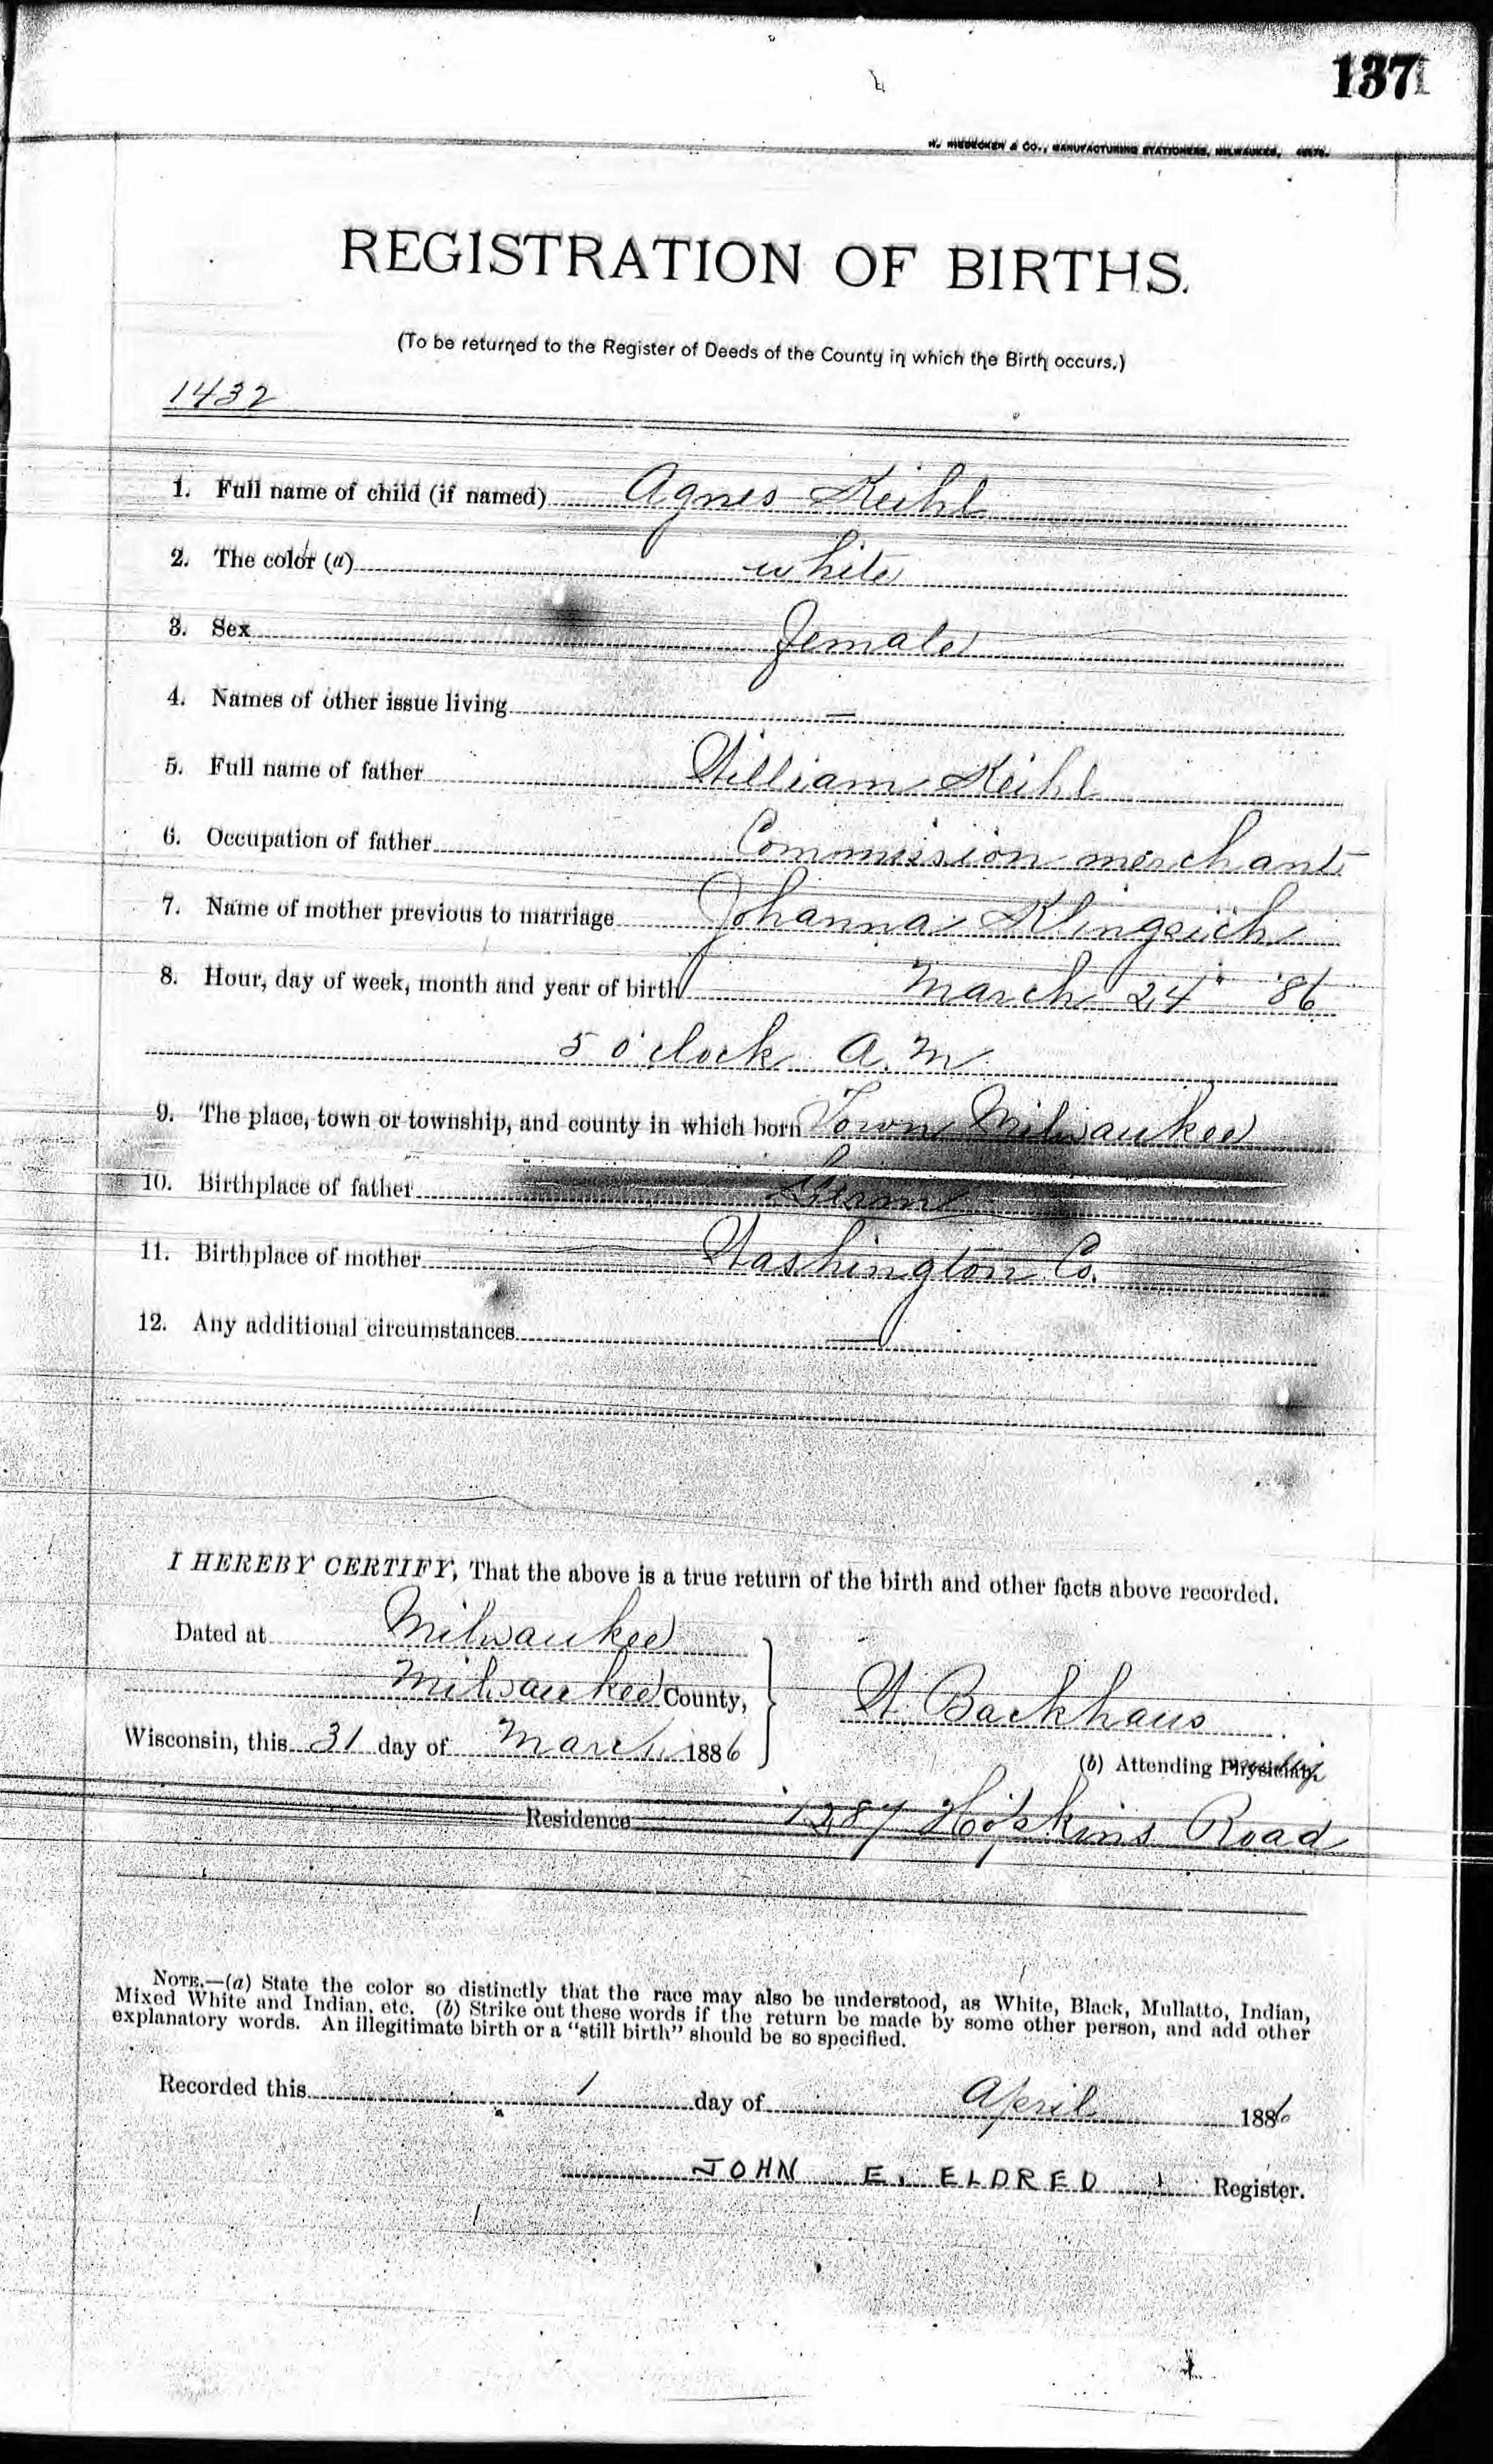 137
H. NIEDECKEN & CO., MANUFACTURING STATIONERS, MILWAUKEE,
REGISTRATION OF BIRTHS.
(To be returned to the Register of Deeds of the County in which the Birth occurs.)
1432
1. Full name of child (if named) Agnes Keihl
2. The color (a) white
3. Sex female
4. Names of other issue living —
5. Full name of father William Keihl
6. Occupation of father Commission merchant
7. Name of mother previous to marriage Johanna
8. Hour, day of week, month and year of birth March 24" '86
5 o'clock A. M
9. The place, town or township, and county in which born Town Milwaukee
10. Birthplace of father Germ
11. Birthplace of mother Washington Co.
12. Any additional circumstances —
I HEREBY CERTIFY, That the above is a true return of the birth and other facts above recorded.
Dated at Milwaukee
Milwaukee County,
W. Backhaus
Wisconsin, this 31 day of March 1886
(b) Attending Physician.
Residence 1287 Hopkins Road
NOTE.—(a) State the color so distinctly that the race may also be understood, as White, Black, Mullatto, Indian,
Mixed White and Indian, etc. (b) Strike out these words if the return be made by some other person, and add other
explanatory words. An illegitimate birth or a "still birth" should be so specified.
Recorded this 1 day of April 1886
JOHN E. ELDRED Register.